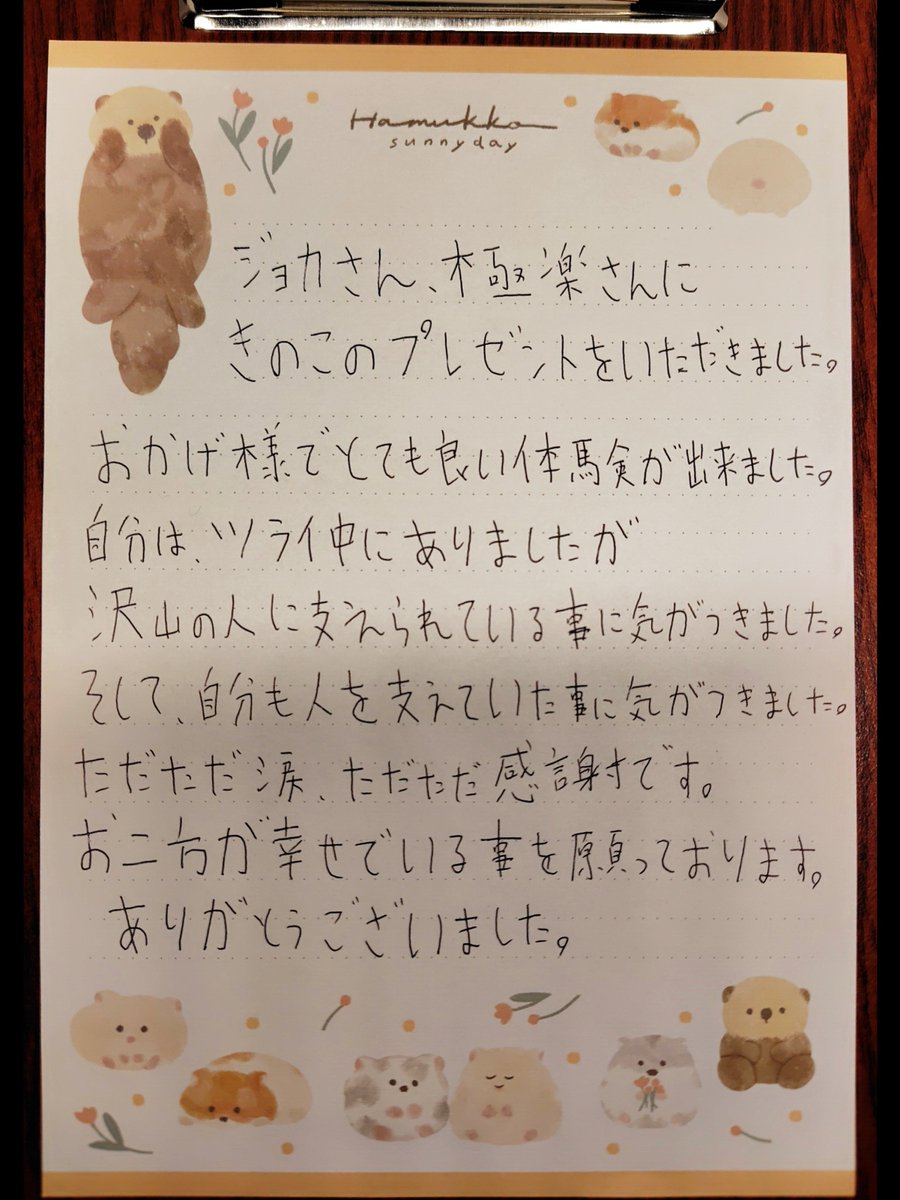 Hamukko
sunnyday
ジョカさん、極楽さんに
きのこのプレゼントをいただきました。
おかげ様でとても良い体験が出来ました。
自分は、ツライ中にありましたが
沢山の人に支えられている事に気がつきました。
そして、自分も人を支えていた事に気がつきました。
ただただ涙、ただただ感謝です。
お二方が幸せでいる事を願っております。
ありがとうございました。